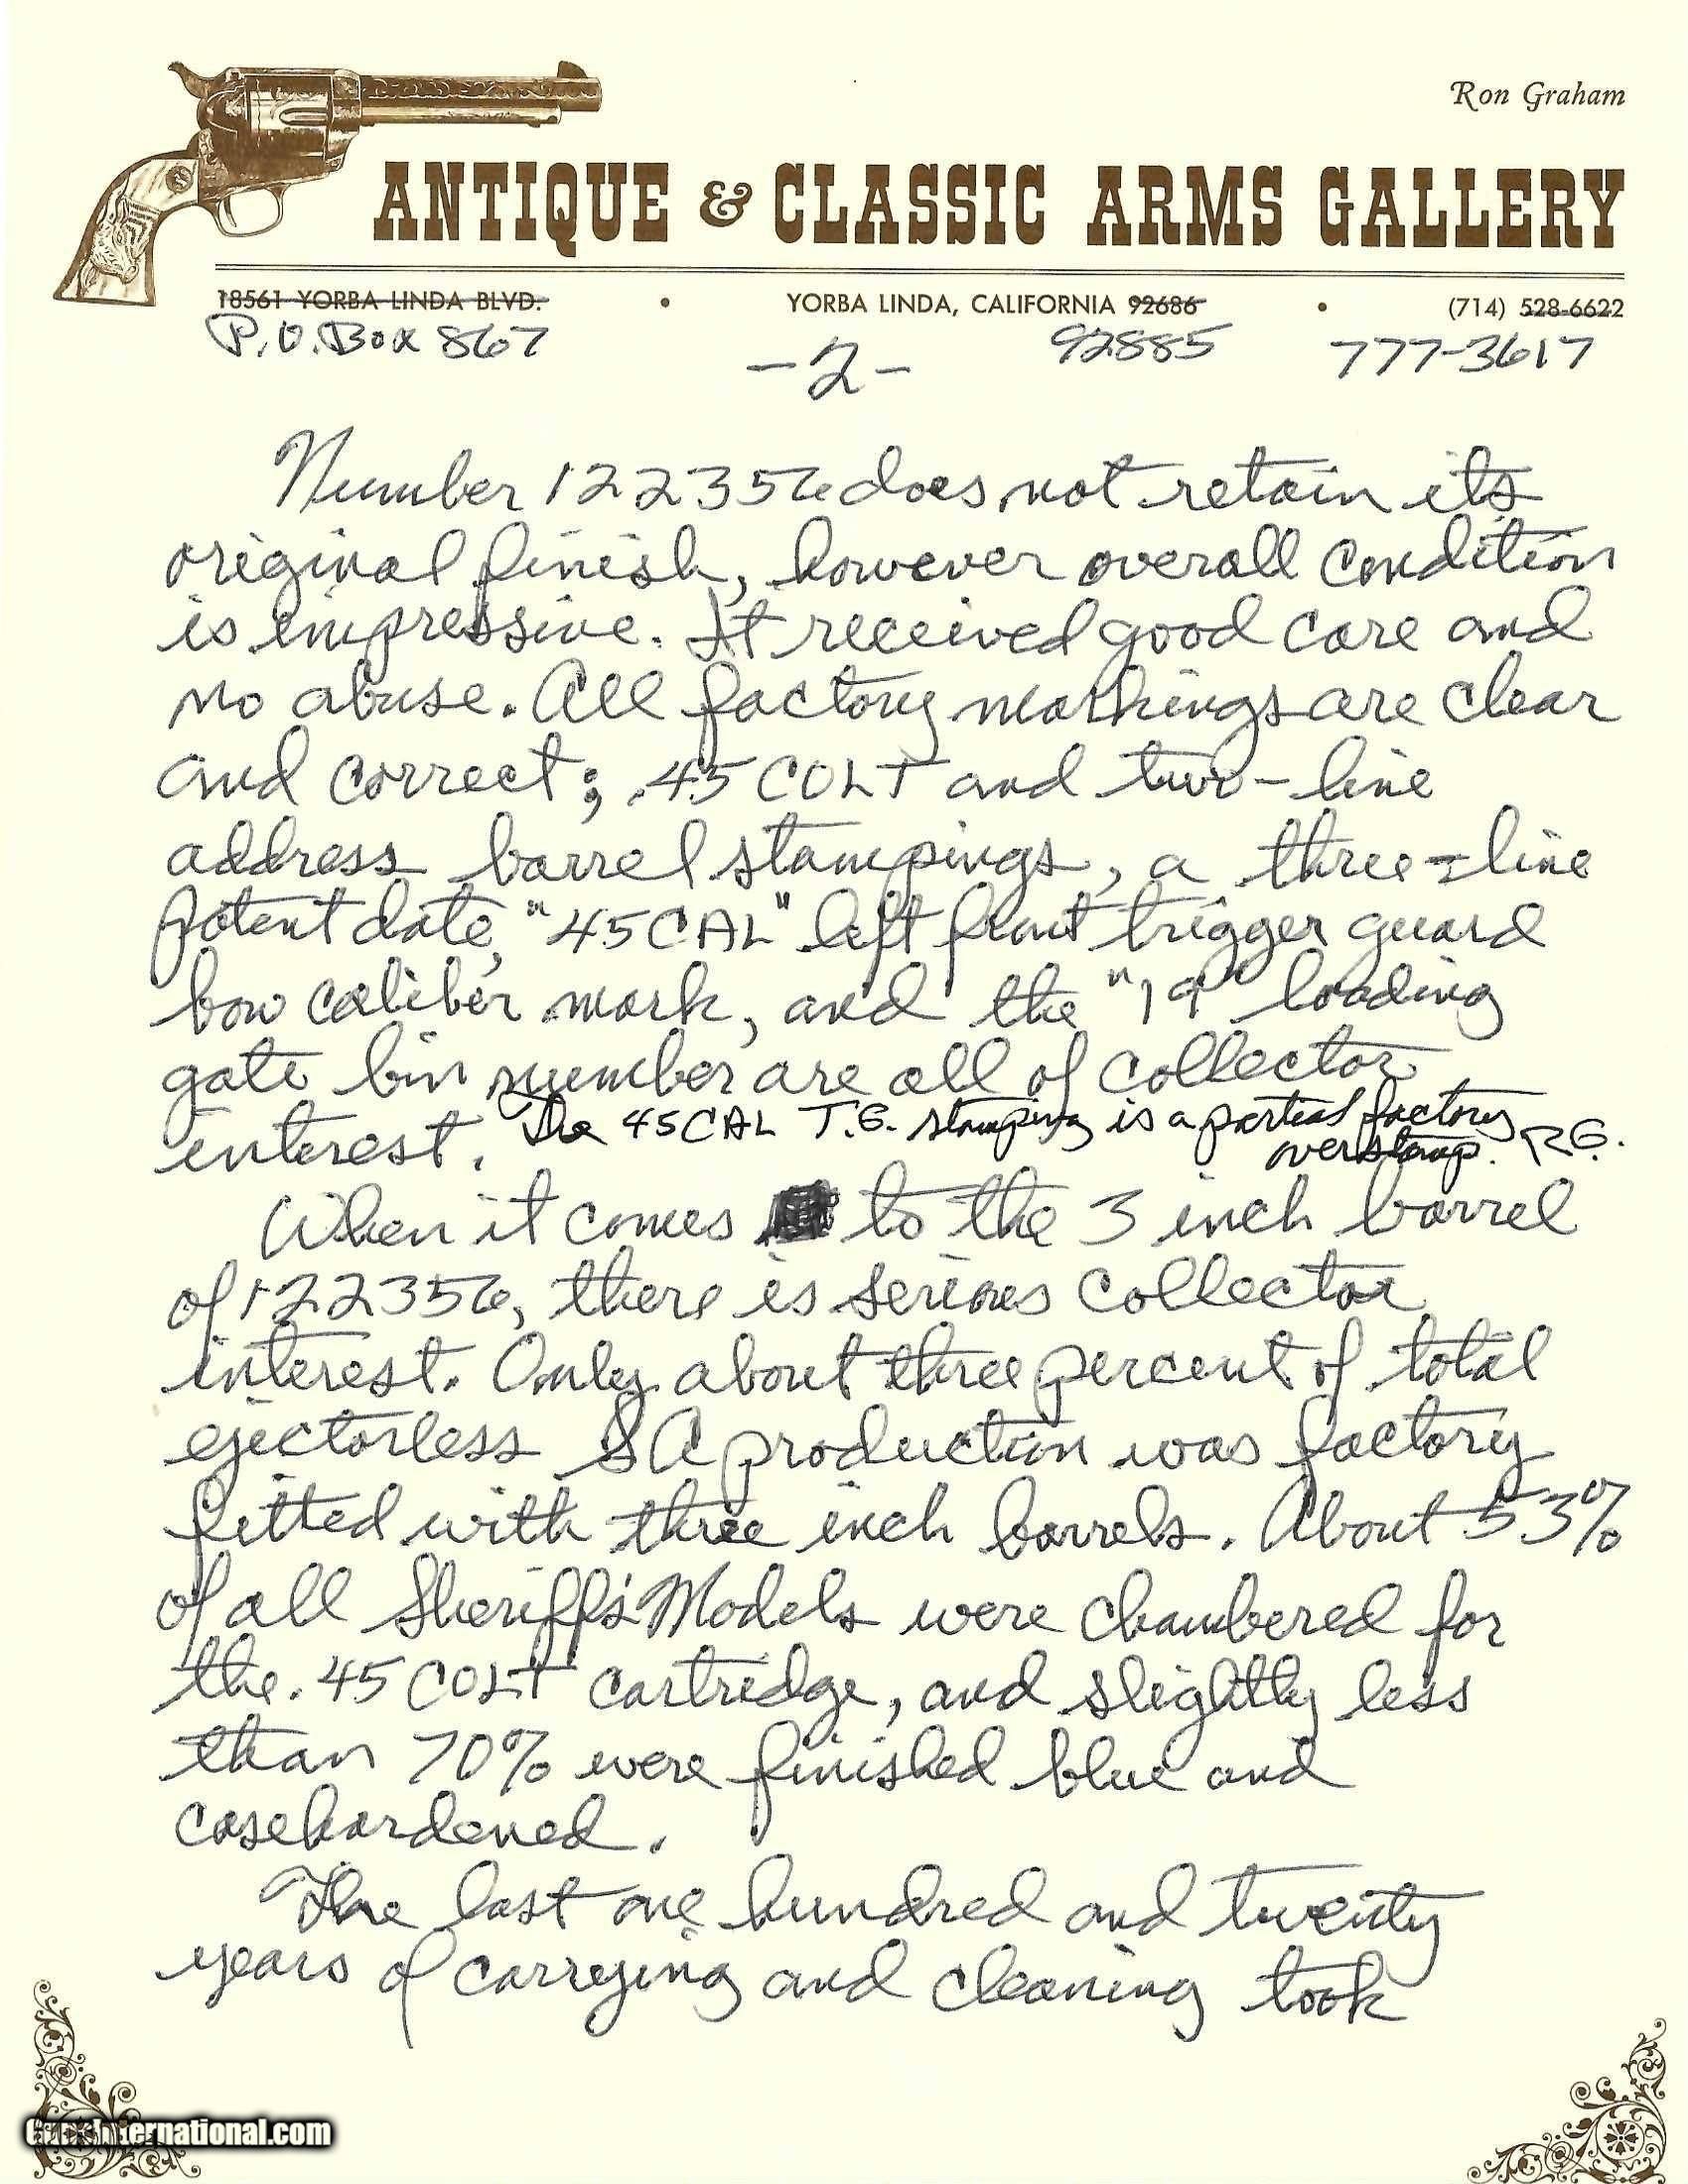 Ron Graham
ANTIQUE & CLASSIC ARMS GALLERY
18561 YORBA LINDA BLVD. • YORBA LINDA, CALIFORNIA 92686 • (714) 528-6622
P.O. Box 867 92885 777-3617
-2-
Number 122356 does not retain its
original finish, however overall condition
is impressive. It received good care and
no abuse. All factory markings are clear
and correct; .45 COLT and two-line
address barrel stampings, a three-line
patent date, "45CAL" left front trigger guard
bow caliber mark, and the "19" loading
gate bin number are all of collector
interest. The 45CAL T.G. stamping is a partial factory
overstamp. R.G.
When it comes to the 3 inch barrel
of 122356, there is serious collector
interest. Only about three percent of total
ejectorless SA production was factory
fitted with three inch barrels. About 53%
of all Sheriff's Models were chambered for
the .45 COLT cartridge, and slightly less
than 70% were finished blue and
casehardened.
The last one hundred and twenty
years of carrying and cleaning took
GunsInternational.com